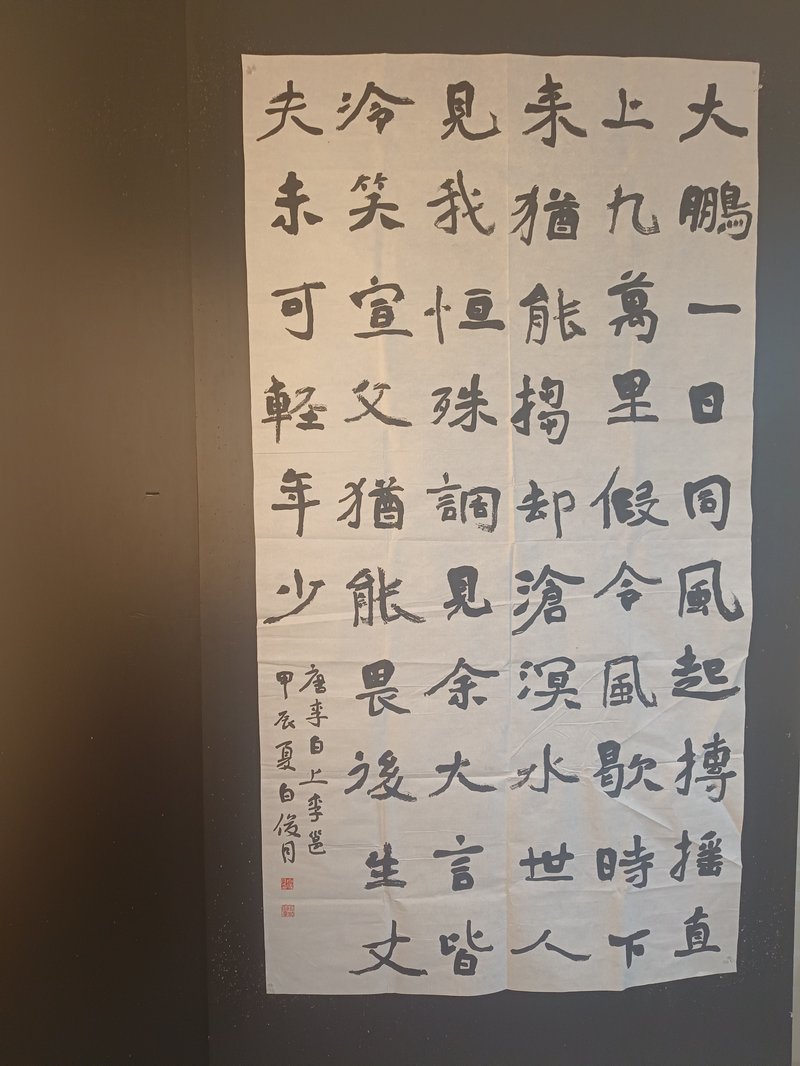 大鵬一日同風起摶摇直
上九萬里假令風歇時下
来猶能搊却滄溟水世人
見我恒殊調見余大言皆
冷笑宣父猶能畏後生丈
夫未可軽年少
唐李白上李邕
甲辰夏白俊月